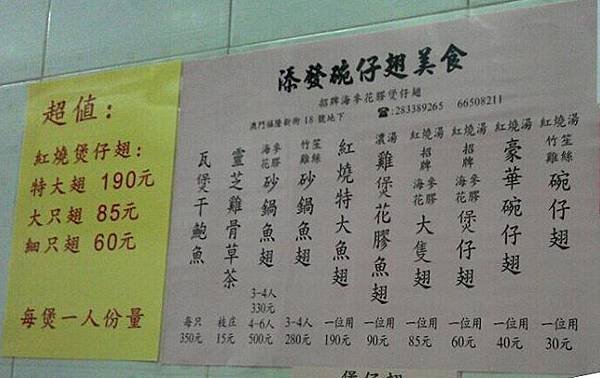 超值:
紅燒煲仔翅:
特大翅 190元
大只翅 85元
細只翅 60元
每煲一人份量
添發碗仔翅美食
招牌海參花膠煲仔翅
澳門福隆新街 18 號地下
☎:283389265 66508211
紅燒湯 竹笙雞絲 碗仔翅 一位用 30元
紅燒湯 豪華碗仔翅 一位用 40元
紅燒湯 招牌 海參花膠 煲仔翅 一位用 60元
紅燒湯 招牌 海參花膠 大隻翅 一位用 85元
濃湯 雞煲花膠魚翅 一位用 90元
紅燒特大魚翅 一位用 190元
竹笙雞絲 砂鍋魚翅 3-4人 280元
海參花膠 砂鍋魚翅 3-4人 330元 4-6人 500元
靈芝雞骨草茶 枝庄 15元
瓦煲干鮑魚 每只 350元
煲仔翅